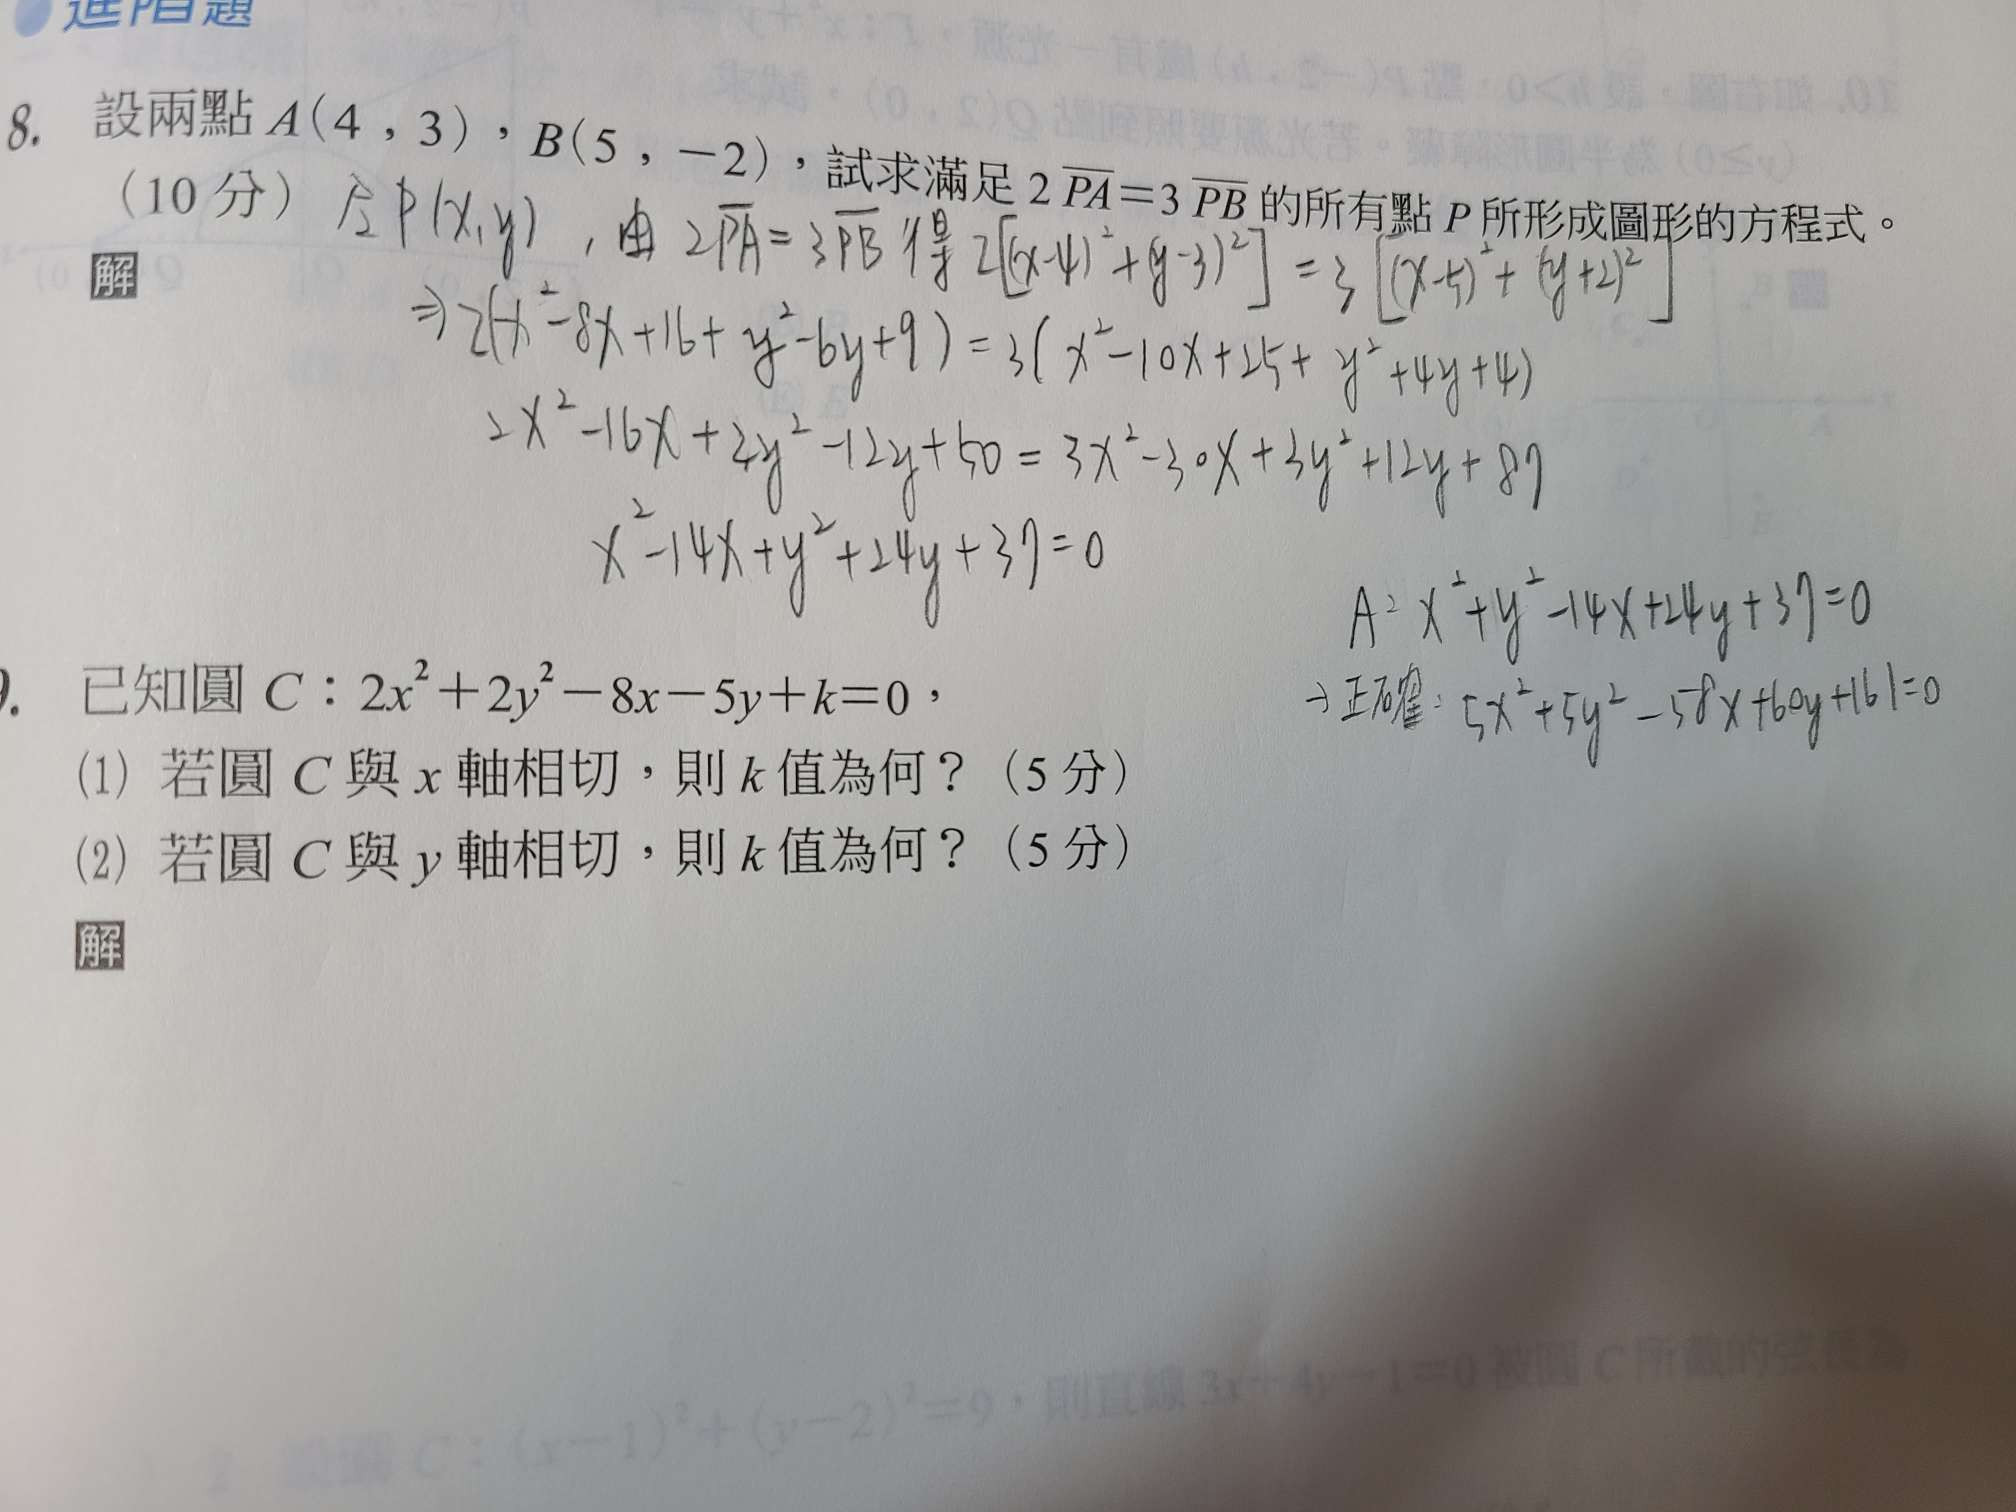 進階題
8. 設兩點 A(4,3),B(5,-2),試求滿足 2 \overline{PA}=3 \overline{PB} 的所有點 P 所形成圖形的方程式。
(10 分) P(x,y),由 2\overline{PA}=3\overline{PB} 得 2[(x-4)²+(y-3)²]=3[(x-5)²+(y+2)²]
解
⇒2(x²-8x+16+y²-6y+9)=3(x²-10x+25+y²+4y+4)
2x²-16x+2y²-12y+50=3x²-30x+3y²+12y+87
x²-14x+y²+24y+37=0
A: x²+y²-14x+24y+37=0
→正確: 5x²+5y²-58x+60y+161=0
9. 已知圓 C:2x²+2y²-8x-5y+k=0,
(1) 若圓 C 與 x 軸相切,則 k 值為何?(5 分)
(2) 若圓 C 與 y 軸相切,則 k 值為何?(5 分)
解